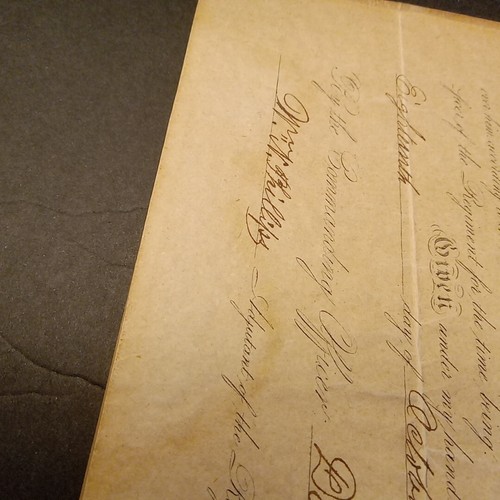 officer of the Regiment for the time being.
Given under my hand
Eighteenth day of Octo
By the Commanding Officer.
Wm. N. Phillips Adjutant of the R